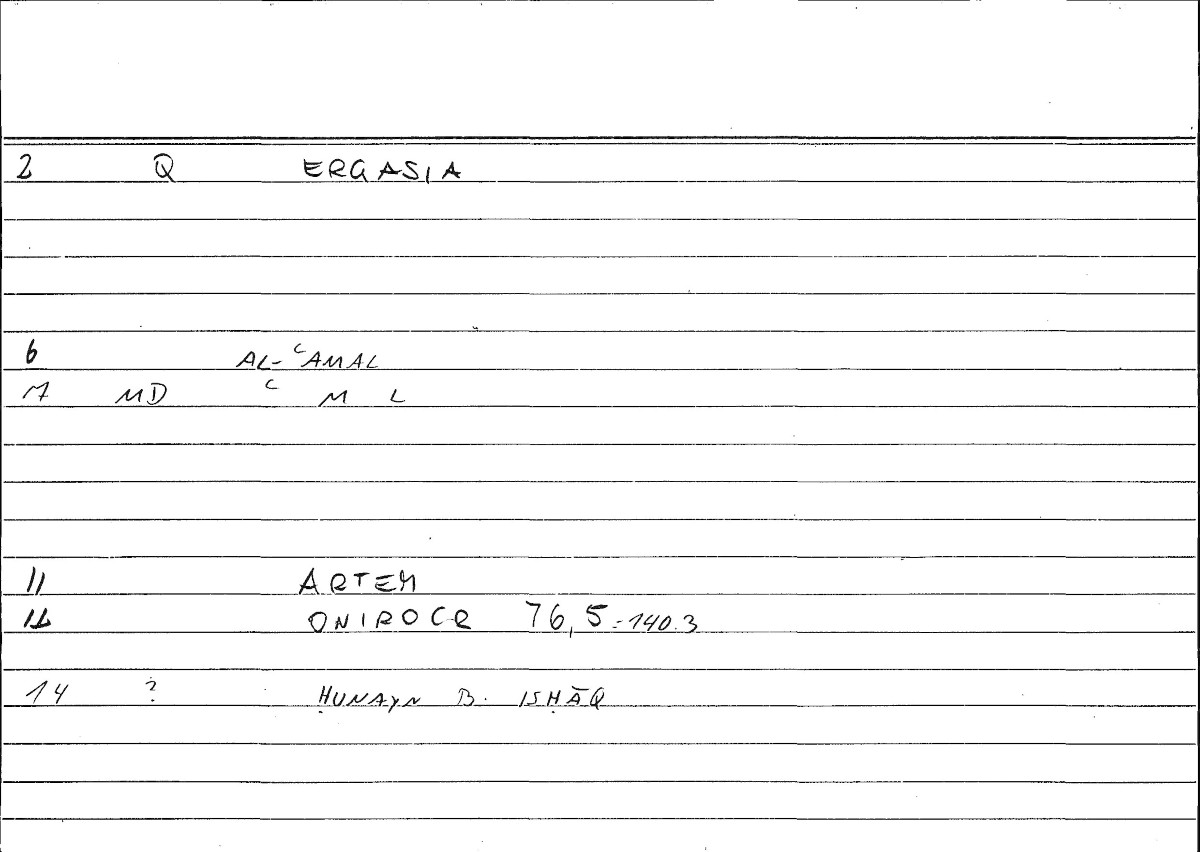 2 Q ERGASIA
6 AL-ʿAMAL
7 MD ʿ M L
11 ARTEM
12 ONIROCR 76,5 = 140.3
14 ? ḤUNAYN B. ISḤĀQ